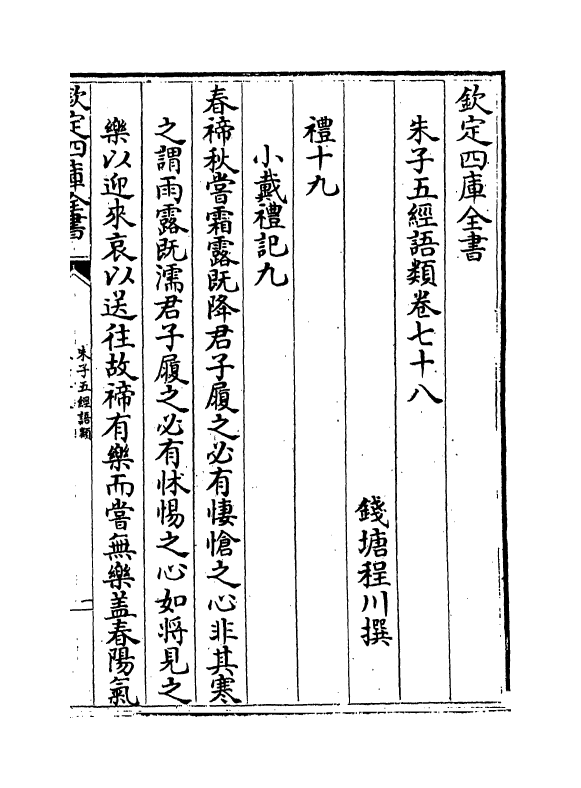 欽定四庫全書
朱子五經語類卷七十八
錢塘程川撰
禮十九
小戴禮記九
春禘秋嘗霜露既降君子履之必有悽愴之心非其寒
之謂雨露既濡君子履之必有怵惕之心如將見之
樂以迎來哀以送往故禘有樂而嘗無樂盖春陽氣
欽定四庫全書
朱子五經語類